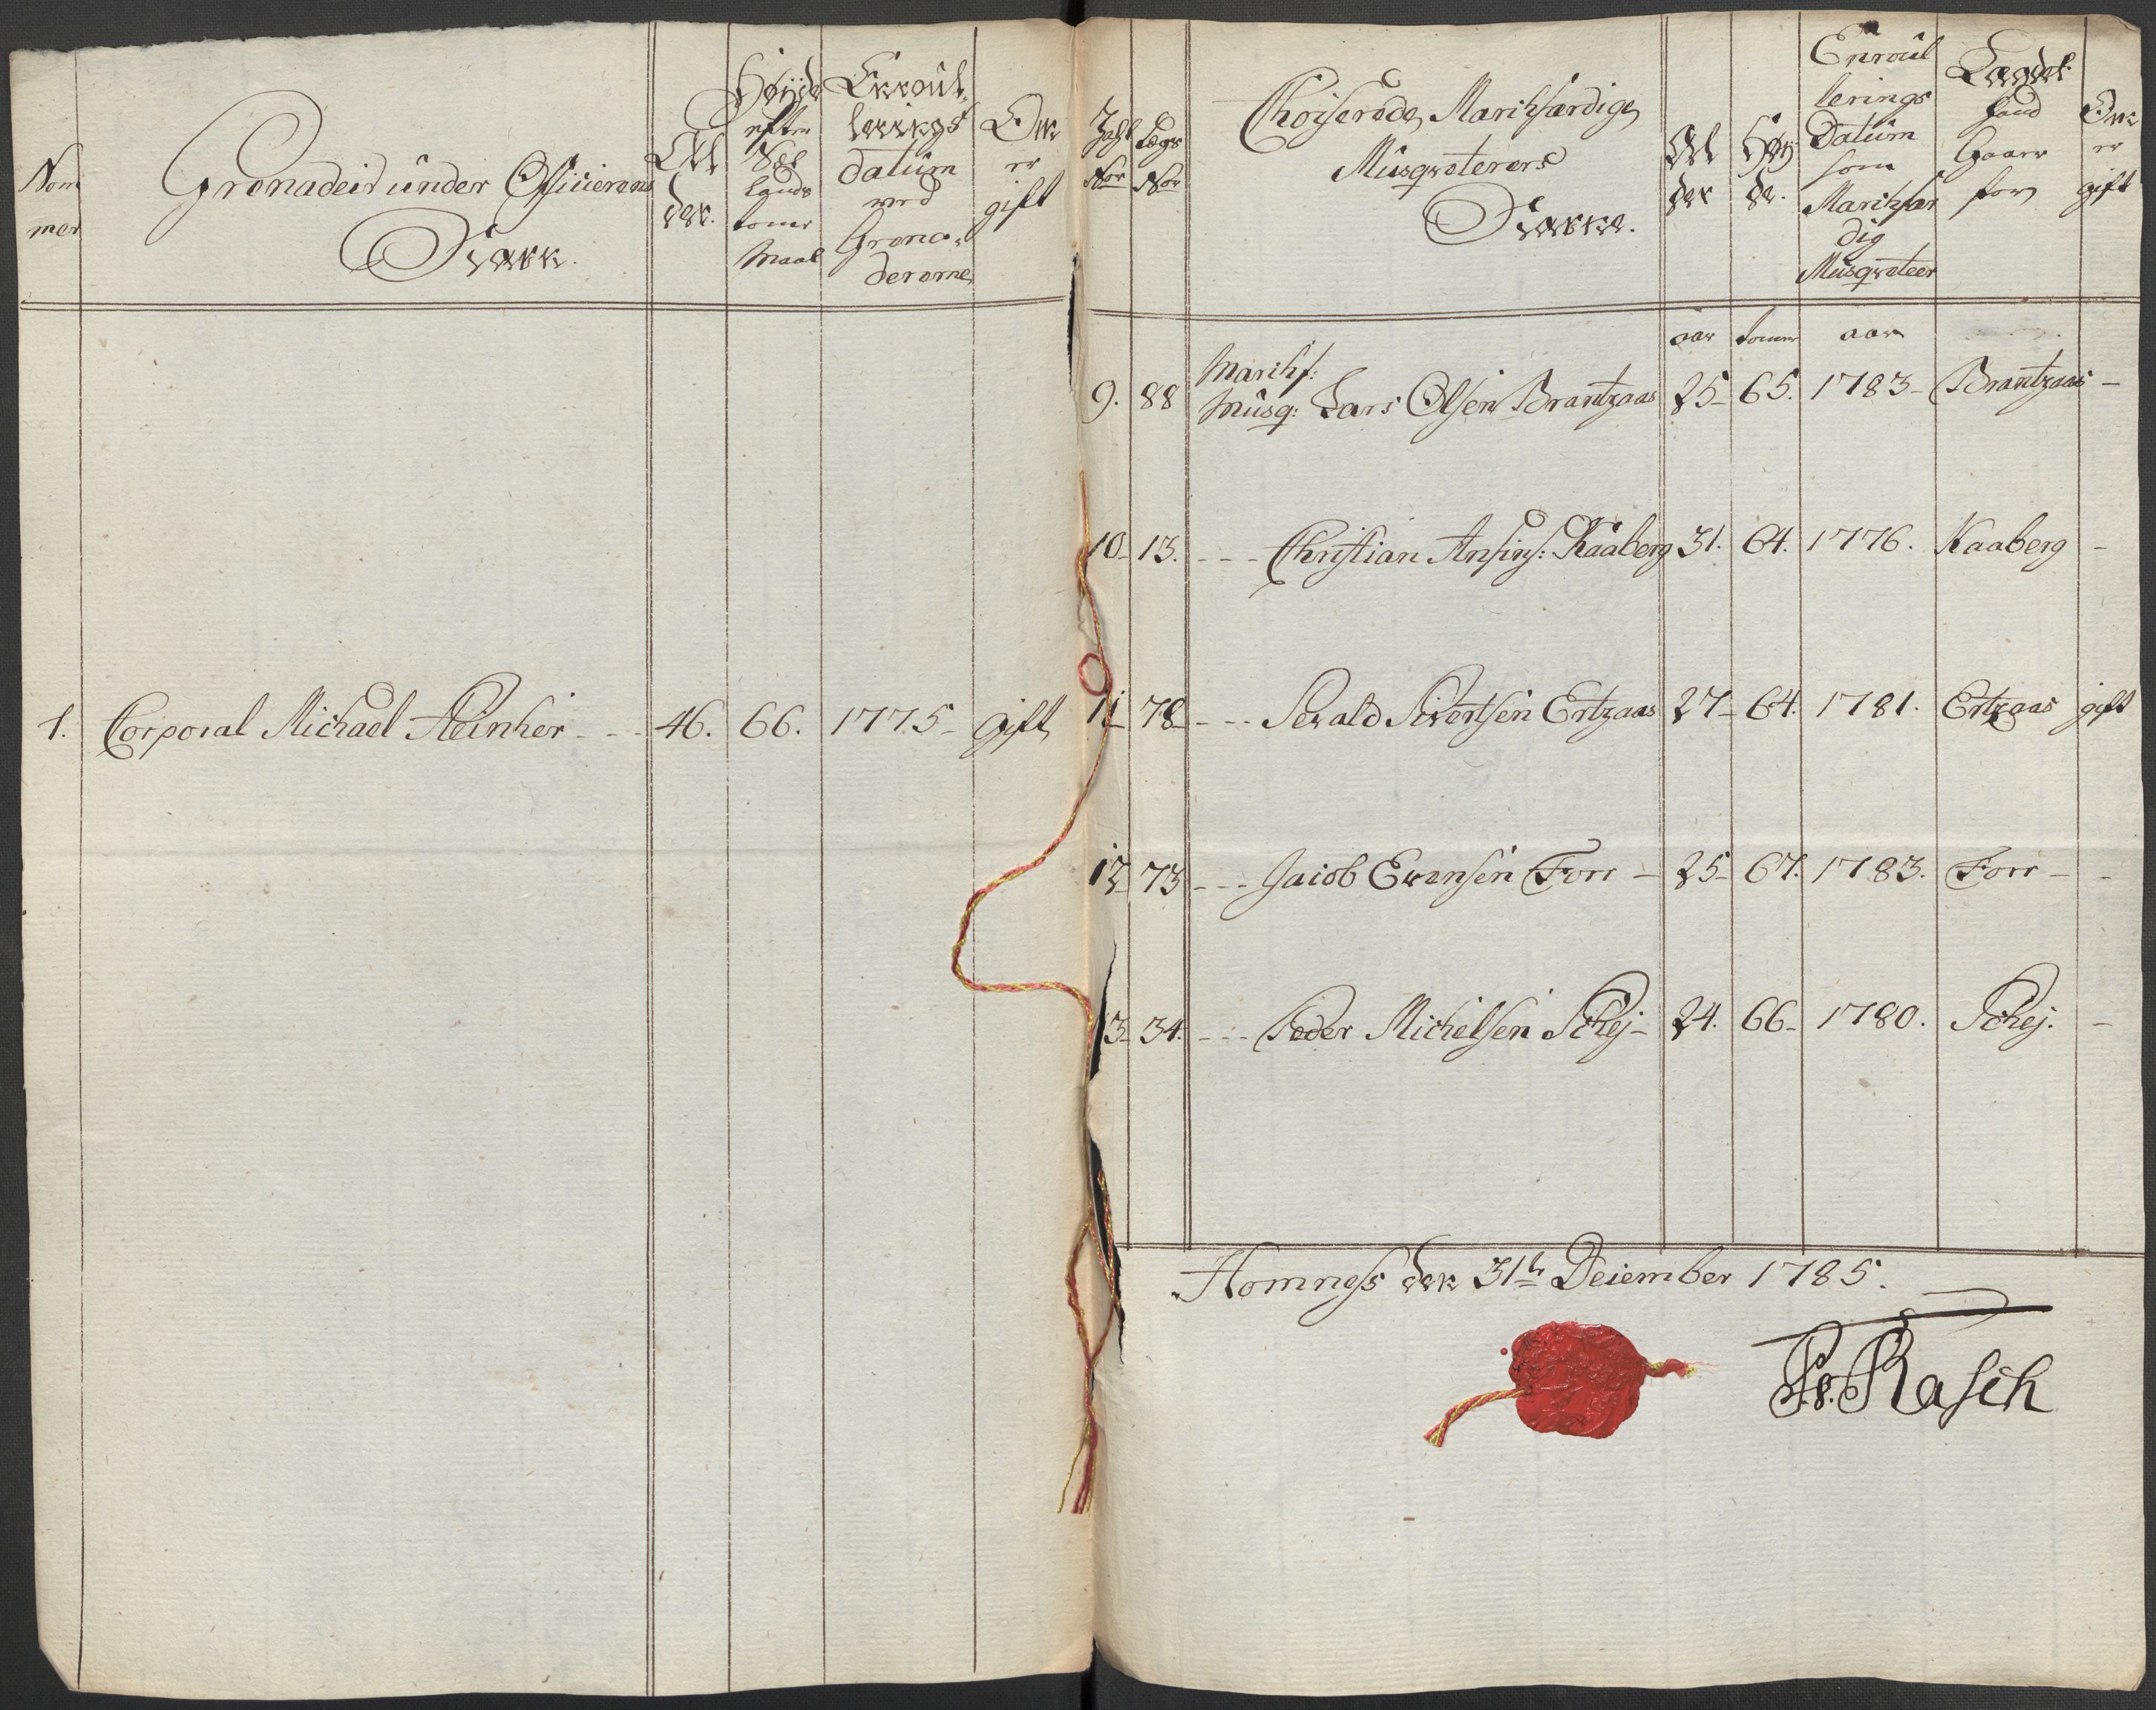 Nom
mer
Grenadeir under Officierens
Nafn.
Al
der.
Høyde
efter
Sel
lands
tomr
Maal
Enroul
lerings
datum
ved
Grena-
dererne
Om
er
gift
1. Corporal Michael Steinker - - - 46. 66. 1775 - gift
No: Legs
No:
Choiserede Marchfærdige
Musqveterers
Nafne.
Al
der
Høy
de.
Enroul
lerings
Datum
som
Marchfær
dig
Musqveteer
Gaar
for
Om
er
gift
aar tomr aar
Marchf:
9. 88 Musq: Lars Olsen Brantzaas 25- 65. 1783- Brantzaas -
10- 13. - - - Christian Ansins: Kaaberg 31. 64. 1776. Kaaberg -
11- 78- - - - Sivald Sivertsen Ertzaas 27- 64. 1781. Ertzaas gift
12- 73 - - - Jacob Evensen Forr - 25- 67. 1783. Forr - -
13- 34. - - - Peder Michelsen Schej- 24. 66- 1780. Schej. -
Homness den 31te December 1785.
Rasch